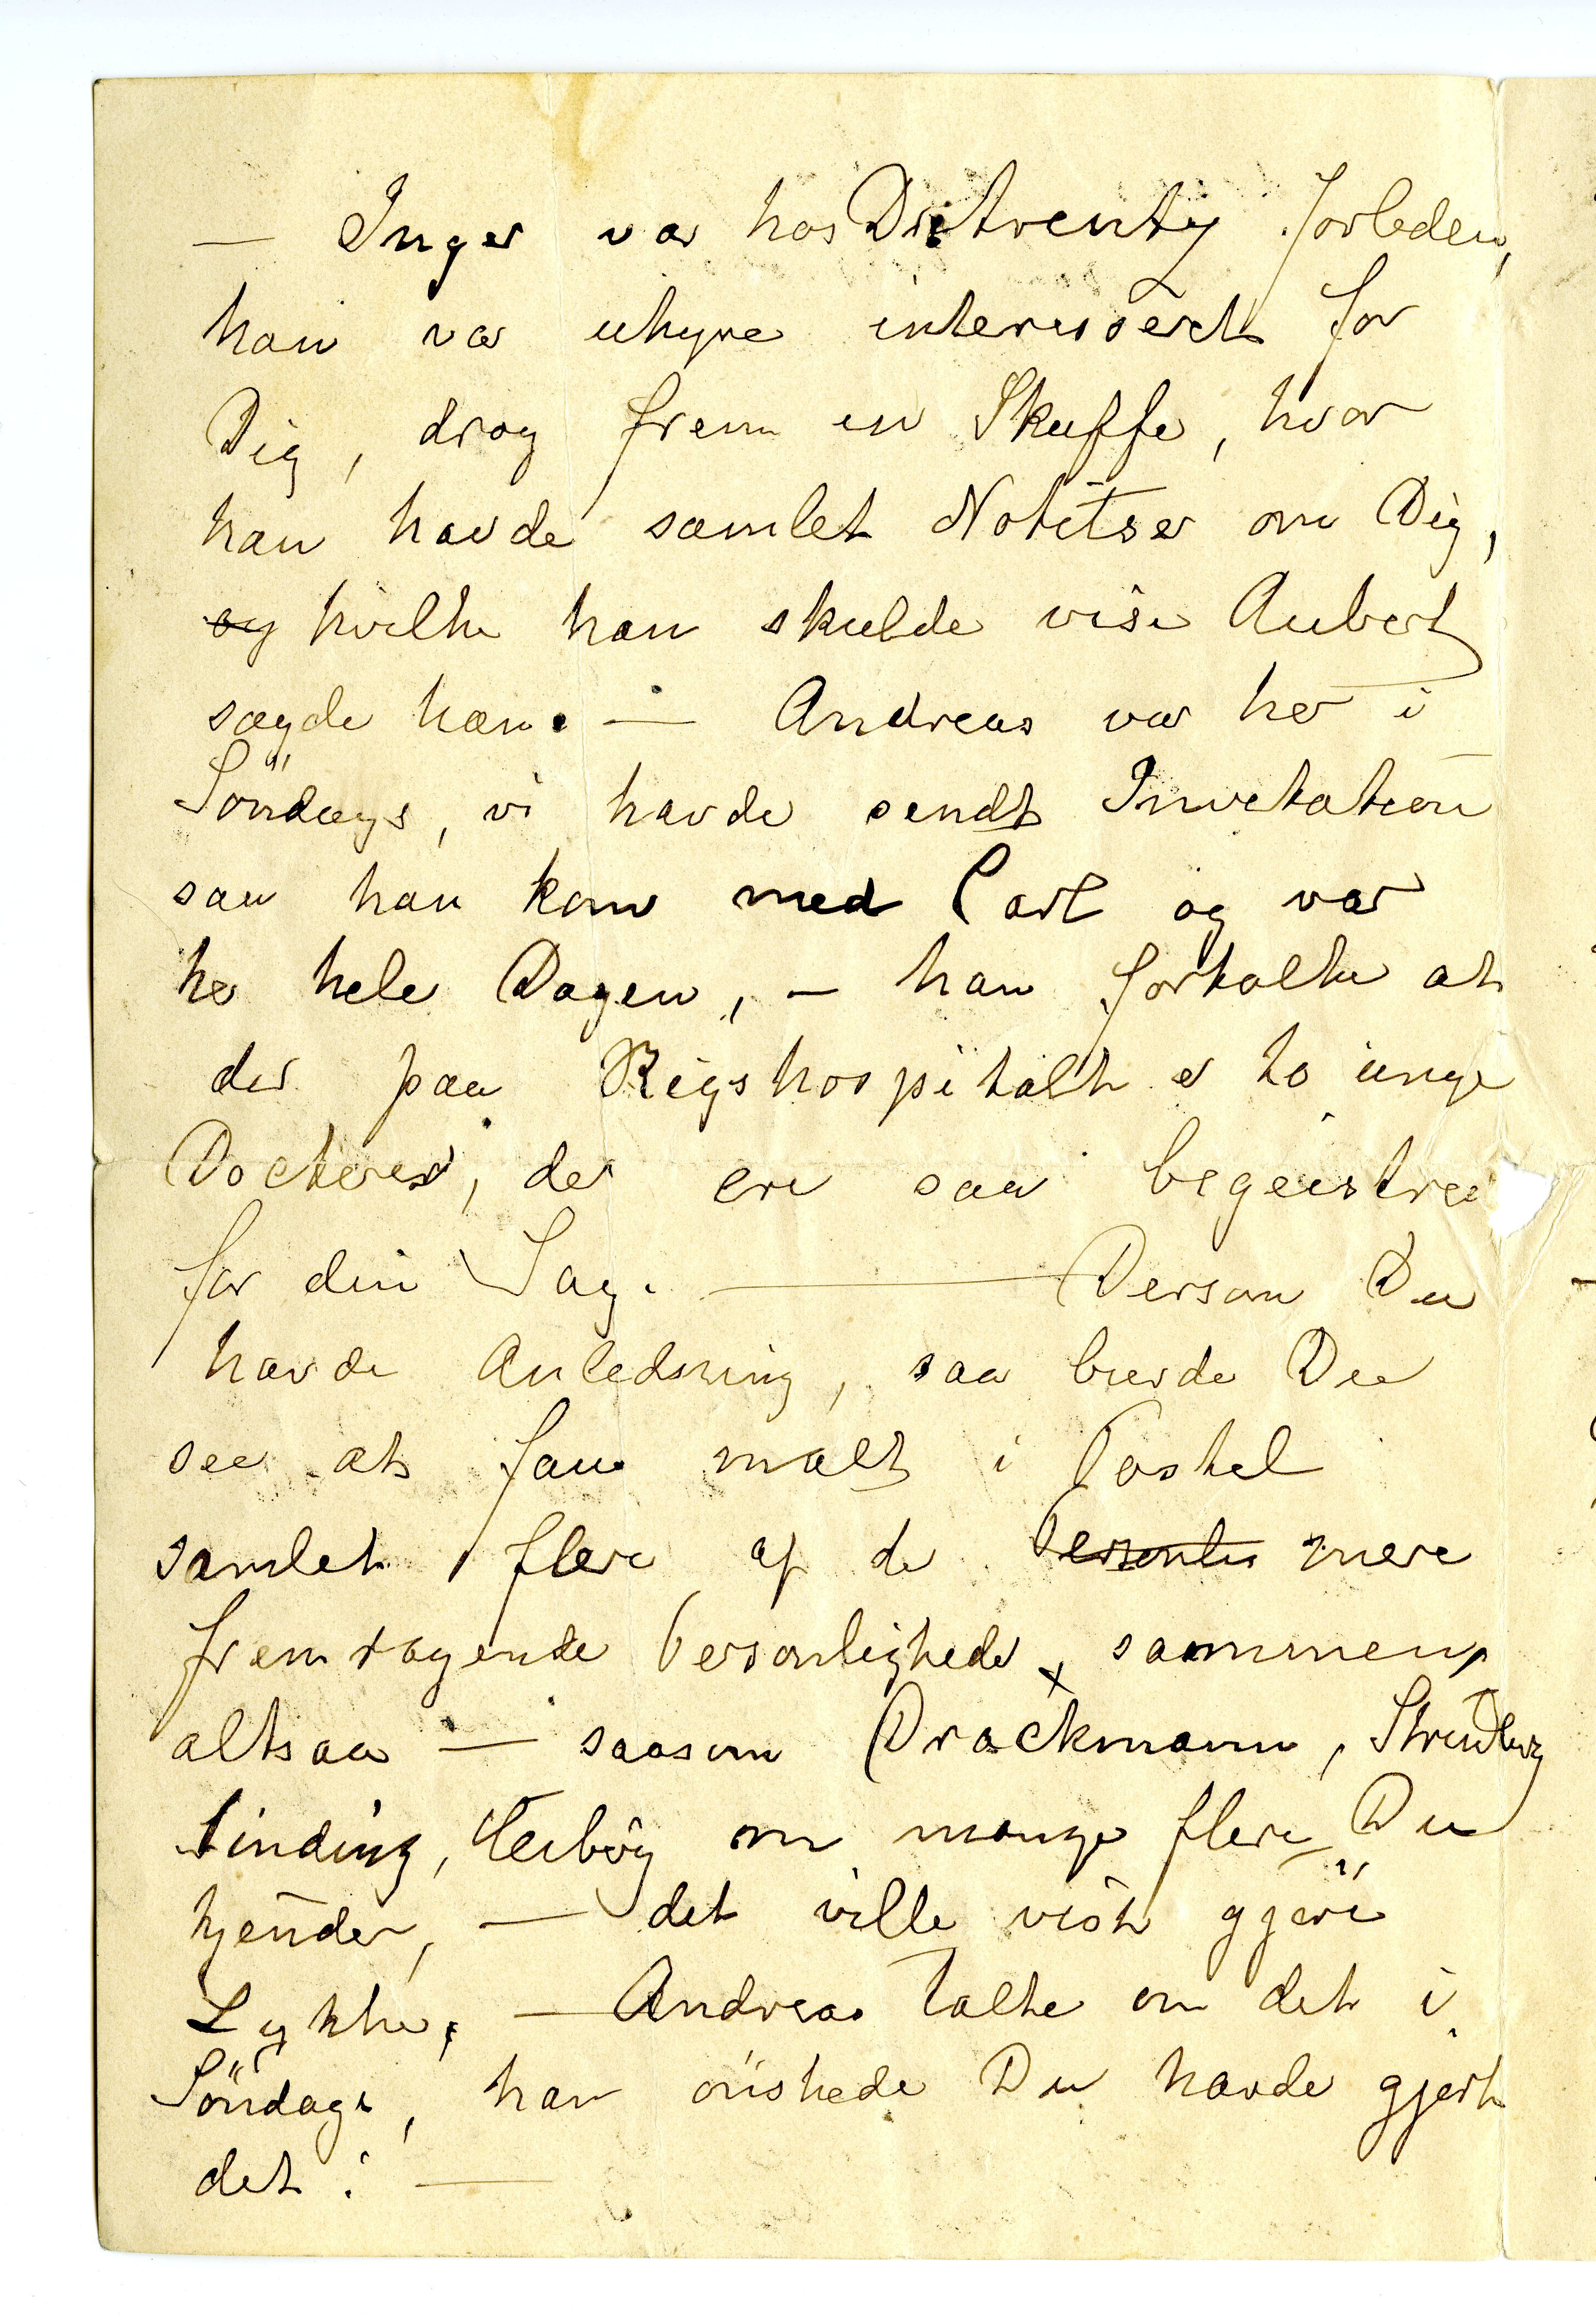 — Inger var hos Dietrentz forleden,
han var uhyre interesseret for
Dig, drog frem en Skuffe, hvor
han havde samlet Notitser om Dig,
og hvilke han skulde vise Aubert
sagde han. — Andreas var her i
Söndags, vi havde sendt Invitation
saa han kom med Carl og var
her hele Dagen, — han fortalte at
der paa Rigshospitalet er to unge
Docterer, der ere saa begeistree
for din Sag. — Dersom Du
havde Anledning, saa burde Du
see at faa malt i Pastel
samlet flere af de Personlis mere
fremragende Personligheder, sammen
altsaa — saasom Drackmann, Strindberg
Sinding, Heiberg om mange flere Du
kjender, — det ville vist gjøre
Lykke, — Andreas talte om det i
Söndags, han önskede Du havde gjort
det! —